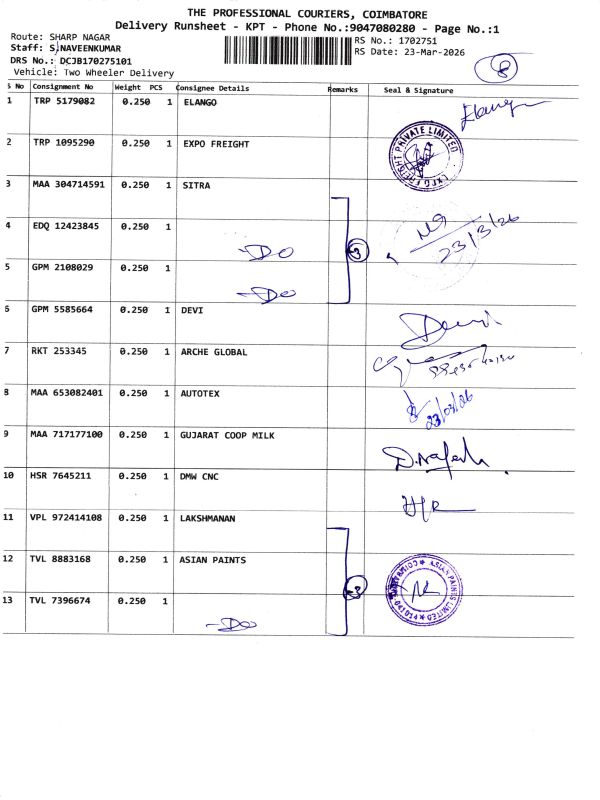 THE PROFESSIONAL COURIERS, COIMBATORE
Delivery Runsheet - KPT - Phone No.:9047080280 - Page No.:1
Route: SHARP NAGAR
RS No.: 1702751
Staff: S.NAVEENKUMAR
RS Date: 23-Mar-2026
DRS No.: DCJB170275101
8
Vehicle: Two Wheeler Delivery
S No Consignment No Weight PCS Consignee Details Remarks Seal & Signature
1 TRP 5179082 0.250 1 ELANGO
2 TRP 1095290 0.250 1 EXPO FREIGHT
EXPO FREIGHT PRIVATE LIMITED
3 MAA 304714591 0.250 1 SITRA
4 EDQ 12423845 0.250 1 -Do 3
23/3/26
5 GPM 2108029 0.250 1 -Do
6 GPM 5585664 0.250 1 DEVI
Devi
7 RKT 253345 0.250 1 ARCHE GLOBAL
8 MAA 653082401 0.250 1 AUTOTEX
23/03/26
9 MAA 717177100 0.250 1 GUJARAT COOP MILK
10 HSR 7645211 0.250 1 DMW CNC
11 VPL 972414108 0.250 1 LAKSHMANAN
12 TVL 8883168 0.250 1 ASIAN PAINTS 3
ASIAN PAINTS LIMITED
13 TVL 7396674 0.250 1 -Do